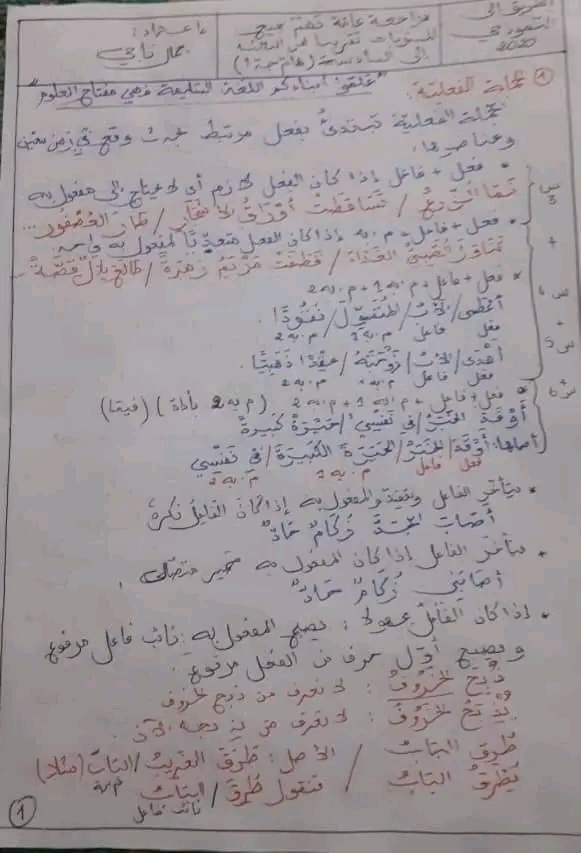 الطريق الى
النموذجي
2020
مراجعة عامة تهم جميع
المستويات تقريبا من الثالثة
إلى السادسة
إعداد:
"علّموا أبناءكم اللغة السليمة فهي مفتاح العلوم"
① الجملة الفعلية:
الجملة الفعلية تبتدئ بفعل مرتبط بحدث وقع في زمن معين
وعناصرها:
• فعل + فاعل إذا كان الفعل لازم أي لا يحتاج إلى مفعول به
نما الزرع / تساقطت أوراق الأشجار / طار العصفور...
• فعل + فاعل + م.به إذا كان الفعل متعديا لمفعول به واحد
تناول الغداء / قطفت مريم زهرة / طالع بلال قصة
• فعل + فاعل + م.به 1 + م.به 2
أعطى / الأب / المتسول / نقودا.
فعل فاعل م.به 1 م.به 2
أهدى / الأب / زوجته / عقدا ذهبيا.
فعل فاعل م.به 1 م.به 2
• فعل + فاعل + م.به 1 + م.به 2 (م.به 2 بأداة)
أوقد / في نفسي / حيرة كبيرة
أصلها: أوقد / الحيرة الكبيرة / في نفسي
فعل فاعل م.به 1 م.به 2
س 3
+
س 4
+
س 5
س 6
• يتأخر الفاعل ويتقدم المفعول به إذا كان الفاعل نكرة
أصاب الجد زكام حاد
• يتأخر الفاعل إذا كان المفعول به ضمير متصل.
أصابني زكام حاد
• إذا كان الفاعل مجهولا: يصبح المفعول به نائب فاعل مرفوع
ويصبح أول حرف من الفعل مرفوع.
ذُبِحَ الخروفُ: لا نعرف من ذبح الخروف
يُذْبَحُ الخروفُ: لا نعرف من يذبحه الآن.
طُرِقَ البابُ / الأصل: طرق الغريب / الباب (مثلا)
م.به
يُطْرَقُ البابُ / فنقول طُرِقَ / البابُ
نائب فاعل
①